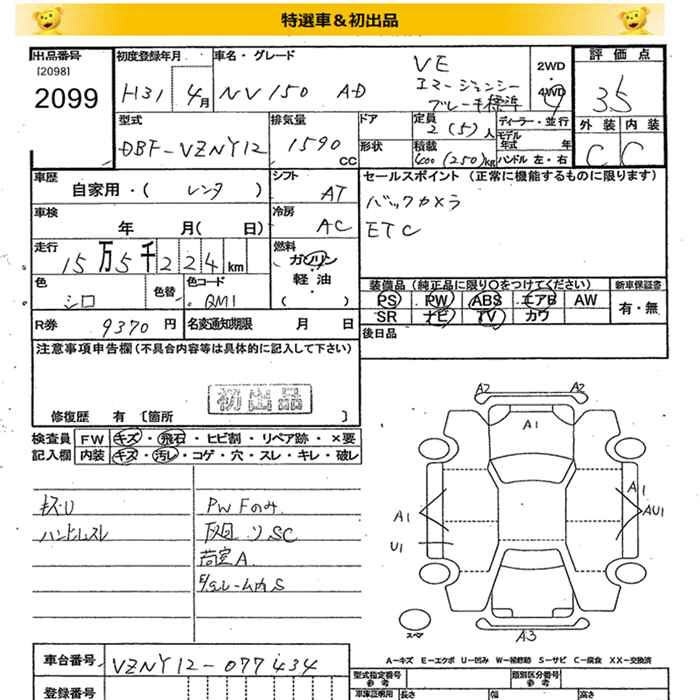 特選車＆初出品
出品番号 初度登録年月 車名・グレード 評価点
[2098]
2099
H31 4月 NV150 AD VE
エマージェンシー
ブレーキ標準
2WD
・
4WD
35
型式 排気量 ドア 定員 2(5)人 ディーラー・並行 外装 内装
DBF-VZNY12 1590cc 形状 積載 400(250)kg モデル年式 年 C C
ハンドル 左・右
車歴 シフト セールスポイント（正常に機能するものに限ります）
自家用・( レンタ ) AT バックカメラ
車検 冷房 ETC
年 月( 日) AC
走行 燃料
15万5千224km ガソリン
・
軽油
・
( )
色 色替 色コード
シロ QM1
装備品（純正品に限り〇をつけてください） 新車保証書
PS PW ABS エアB AW 有・無
SR ナビ TV カワ
R券 9370円 名変通知期限 月 日 後日品
注意事項申告欄（不具合内容等は具体的に記入して下さい）
初出品
修復歴 有 [箇所 ]
検査員 FW キズ・飛石・ヒビ割・リペア跡・×要
記入欄 内装 キズ・汚レ・コゲ・穴・スレ・キレ・破レ
キズU PWFのみ
ハンドルスレ 下回りSC
荷室A
A2 A2
A1
A1 A1 AU1
U1
スペア A3
A－キズ E－エクボ U－凹み W－補修跡 S－サビ C－腐食 XX－交換済
車台番号 VZNY12-077434
型式指定番号 類別区分番号
参考 参考
登録番号 車庫証明用 長さ 幅 高さ